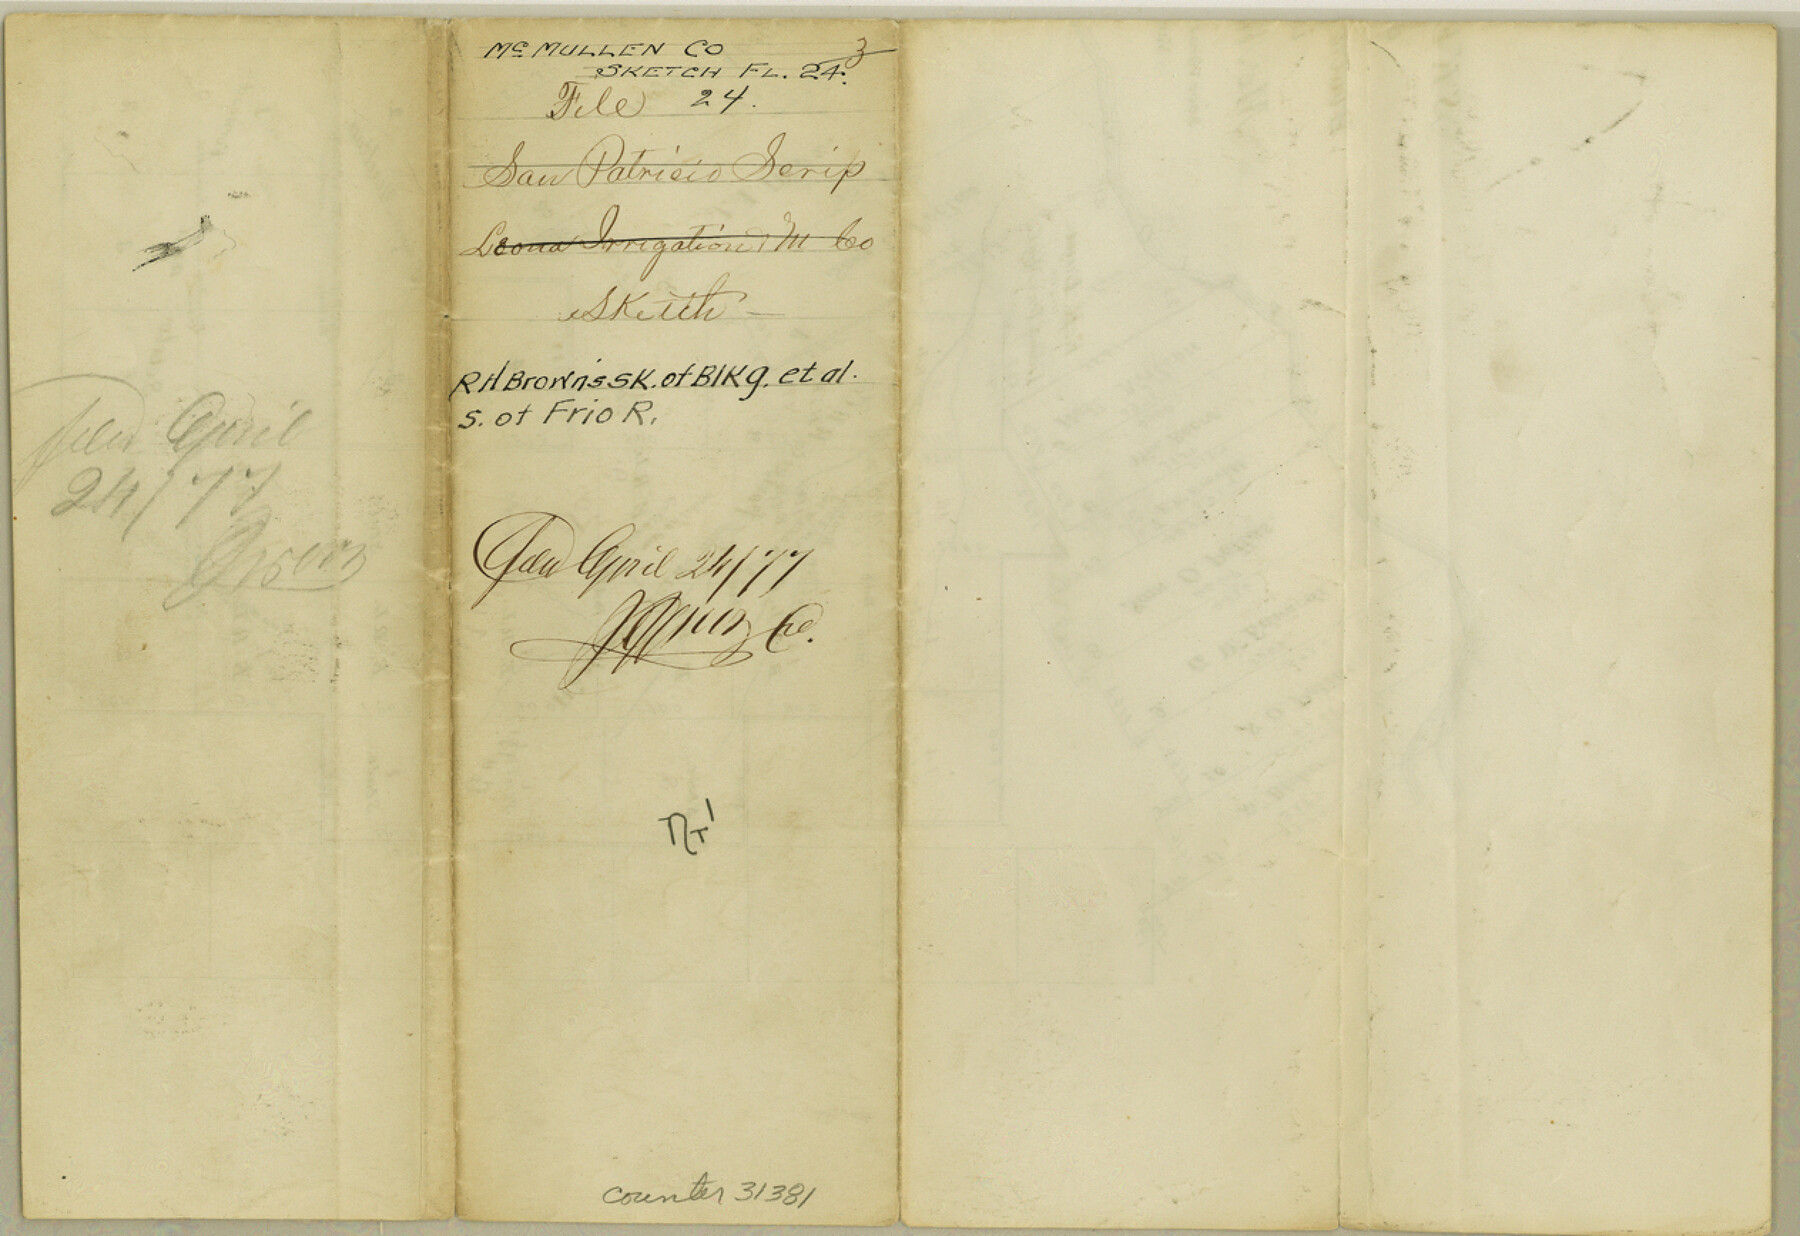 Filed April
24/77
Mc MULLEN CO
3
SKETCH FL. 24.
File 24.
San Patricio Scrip
Leona Irrigation & M Co
Sketch
RH Brown's SK. of Blk 9. et al.
S. of Frio R.
Filed April 24/77
counter 31381